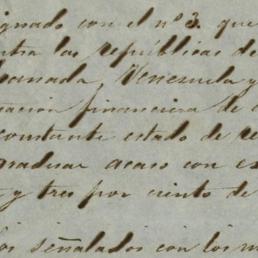 ignado con el nº 3. que
ntra las repúblicas de
Granada, Venezuela y
tacion financiera de
constante estado de re
acaso con
y tres por ciento de
los señalados con los m